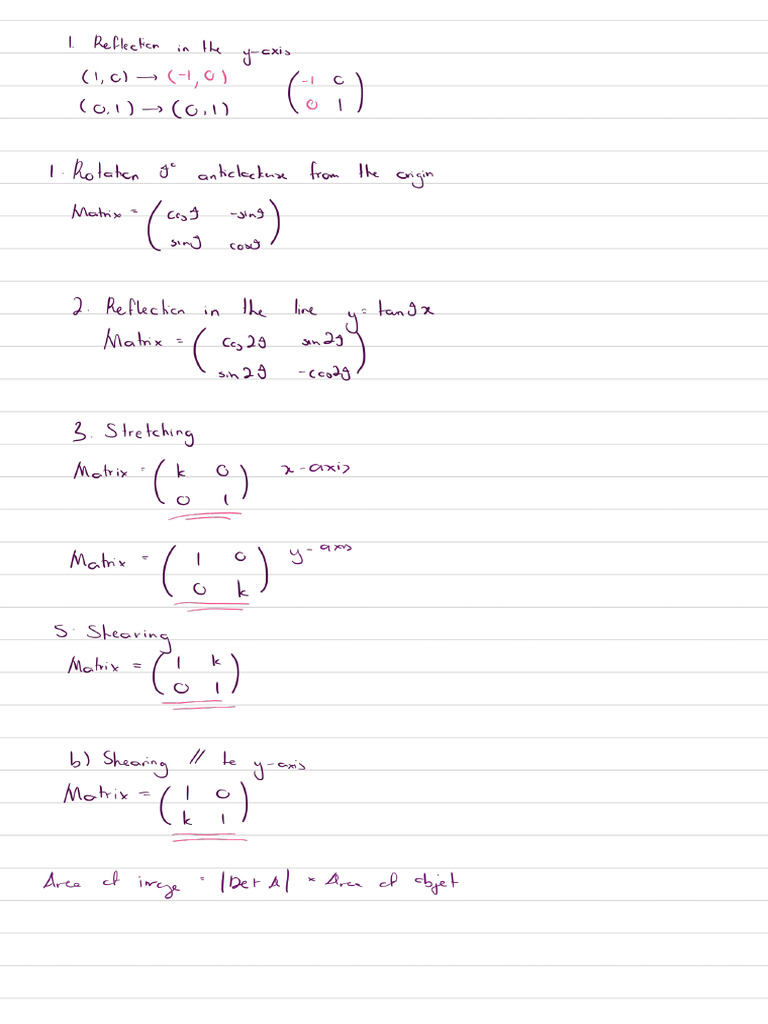 1. Reflection in the y-axis
(1,0) → (-1,0) ( -1 0
(0,1) → (0,1) 0 1 )
1. Rotation θ° anticlockwise from the origin
Matrix = ( cosθ -sinθ
sinθ cosθ )
2. Reflection in the line y = tanθx
Matrix = ( cos2θ sin2θ
sin2θ -cos2θ )
3. Stretching
Matrix = ( k 0 x-axis
0 1 )
Matrix = ( 1 0 y-axis
0 k )
5. Shearing
Matrix = ( 1 k
0 1 )
b) Shearing // to y-axis
Matrix = ( 1 0
k 1 )
Area of image = |Det A| × Area of objet